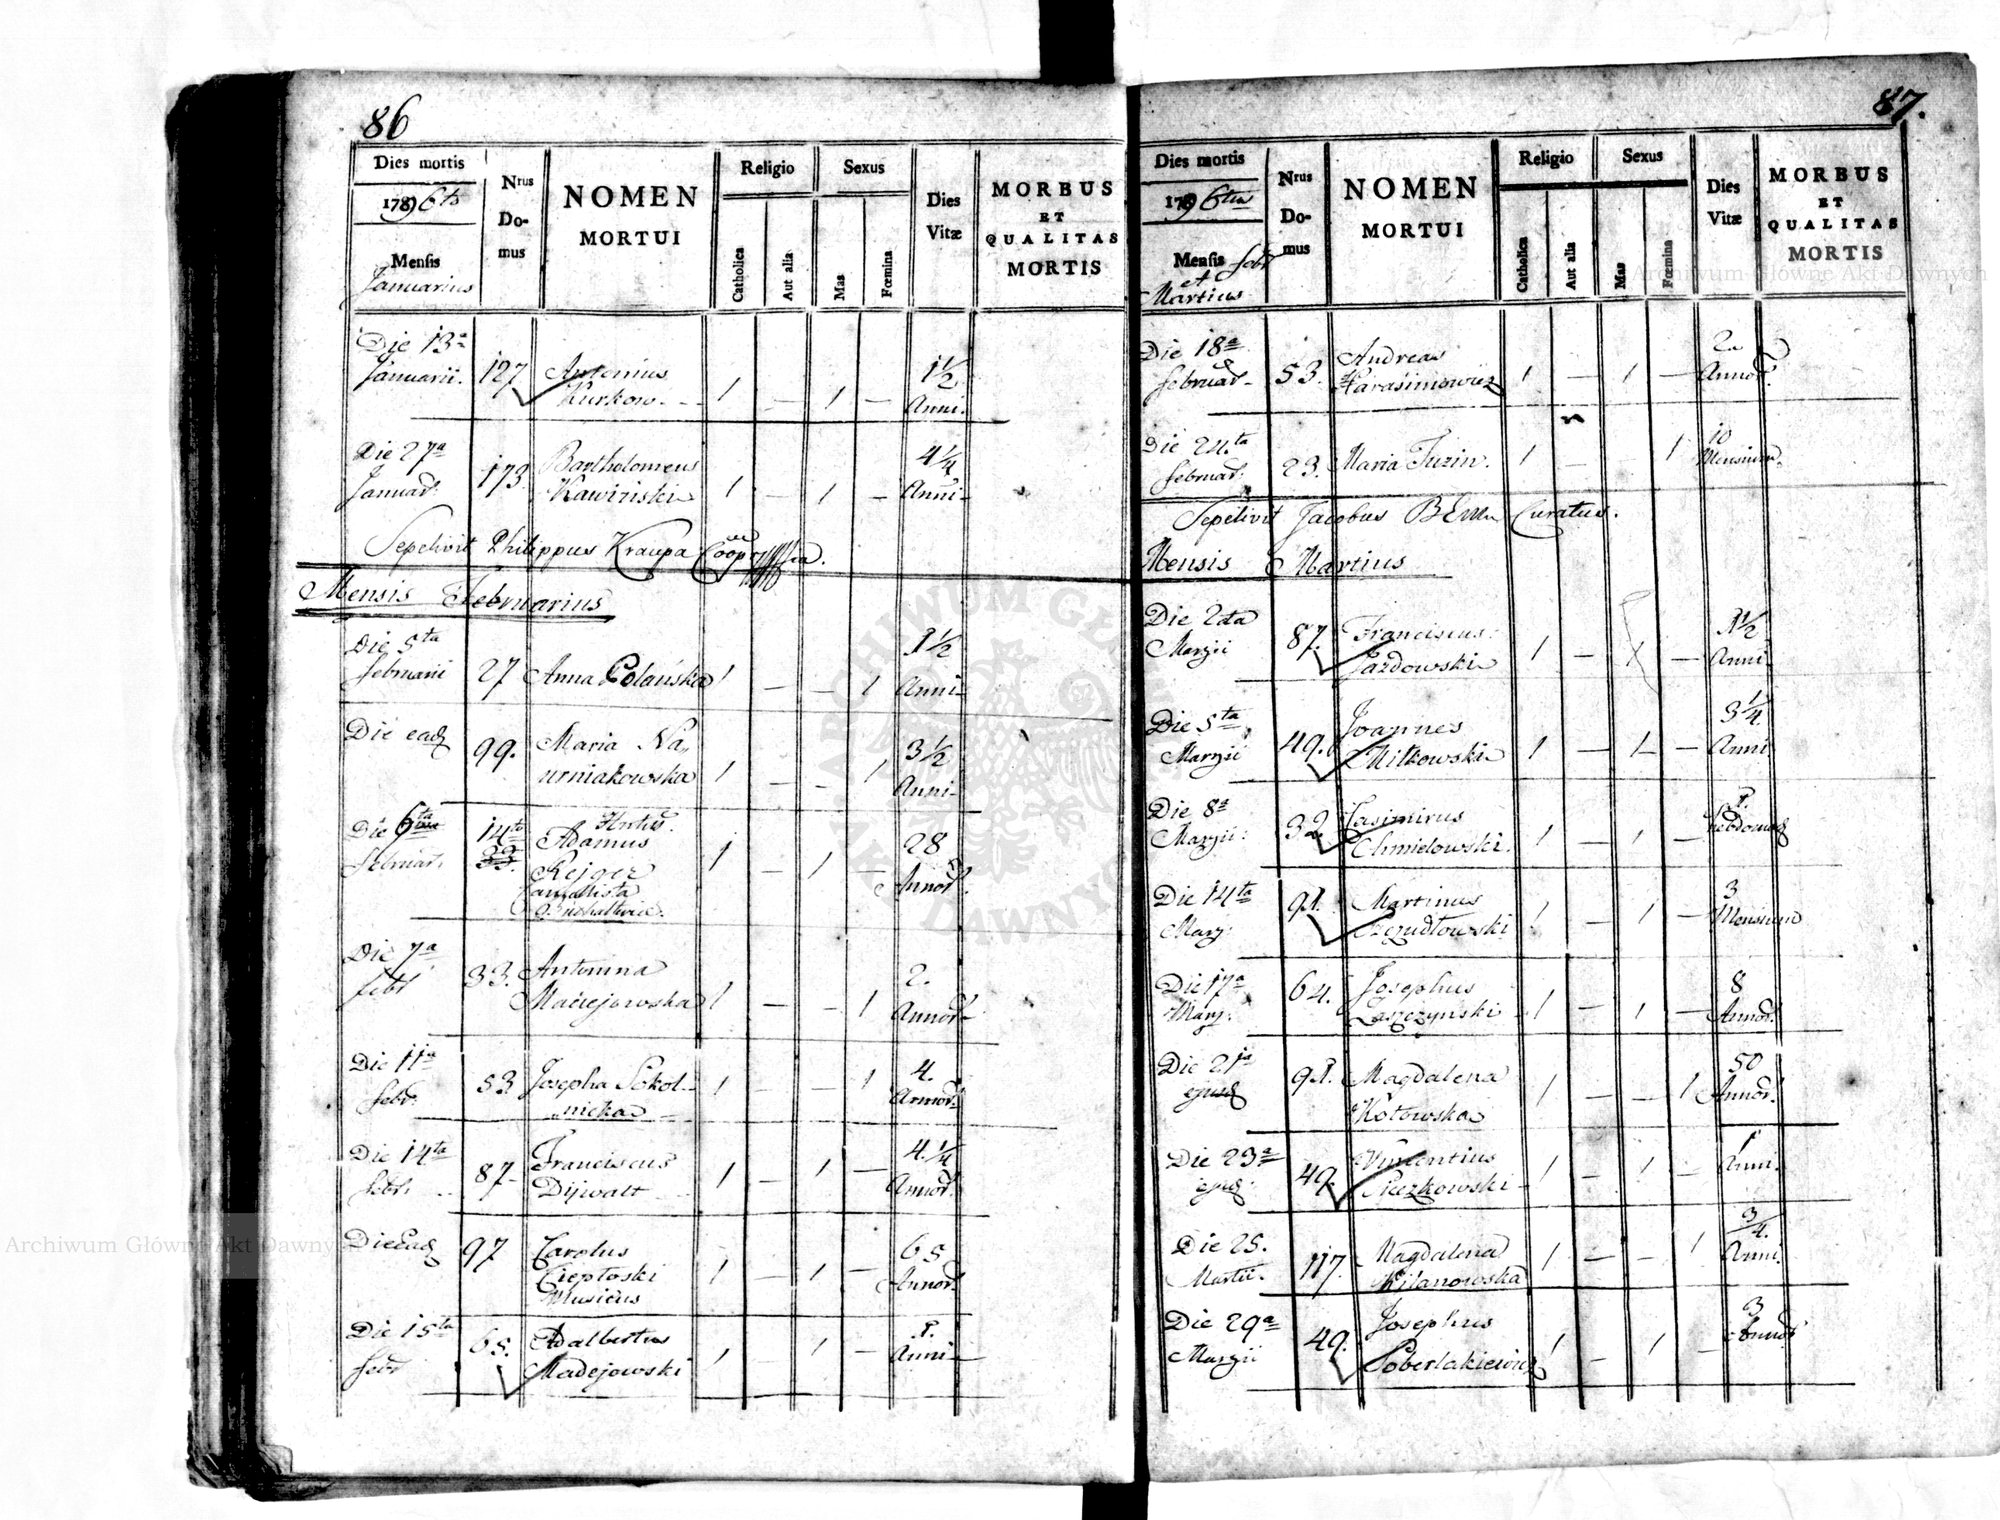 86
Dies mortis
1796to
Mensis
Januarius
Nrus
Do-
mus
NOMEN
MORTUI
Religio
Catholica
Aut alia
Sexus
Mas
Fœmina
Dies
Vitæ
MORBUS
ET
QUALITAS
MORTIS
Die 13a
Januarii. 127 Antonius 1 — 1 — 1½
Kurkow. Anni.
Die 27a 173 Bartholomeus 4¼
Januar. Kawinski 1 — 1 — Anni
Sepelivit Philippus Kraupa
Mensis Februarius
Die 5ta 1½
februarii 27 Anna Polańska 1 — — 1 Anni
Die ead 99. Maria Na, 3½
urniakowska 1 — — 1 Anni
Die 6ta 14to
februar. Adamus 1 — 1 — 28
Rejger Annor.
Die 7a 33. Antonina 2.
febr Maciejowska 1 — — 1 Annor.
Die 11a 53 Josepha Sokol- 1 — — 1 4.
febr. nicka Annor.
Die 14ta 87 Franciscus 1 — 1 — 4.¼
febr. Dijwalt Annor.
Die Ead 97 Carolus 65
Cieptoski 1 — 1 — Annor.
Musicus
Die 15ta 65. Adalbertus 1 — 1 — 1.
febr Madejowski Anni
87.
Dies mortis
1796to
Mensis febr
et
Martius
Nrus
Do-
mus
NOMEN
MORTUI
Religio
Catholica
Aut alia
Sexus
Mas
Fœmina
Dies
Vitæ
MORBUS
ET
QUALITAS
MORTIS
Die 18a 53. Andreas 1 — 1 —
februar. Harasimowicz Annor.
Die 24ta 23. Maria Tuzin. 1 — — 1 10
februar. Mensium.
Sepelivit Jacobus Curatus.
Mensis Martius
Die 2da 87. Franciscus 1½
Marzii Jazdowski 1 — 1 — Anni
Die 5ta 49. Joannes 3¼
Marzii Mitkowski 1 — 1 — Anni
Die 8a 32 Casimirus 1.
Marzii Chmielowski. 1 — 1 —
Die 14ta 91. Martinus 3
Marz: 1 — 1 — Mensium
Die 17a 64. Josephus 8
Marz: Laszczynski 1 — 1 — Annor.
Die 21a 91. Magdalena 1 — — 1 50
ejusd Kotowska Annor.
Die 23a 49. Vincentius 1 — 1 — 1
ejusd Pieczkowski Anni.
Die 25. 117. Magdalena 1 — — 1 3/4.
Martii. Kijanowska Anni
Die 29a 49. Josephus 1 — 1 — 3
Marzii Poberlakiewicz Annor.
Archiwum Główne Akt Dawnych
Archiwum Główne Akt Dawnych